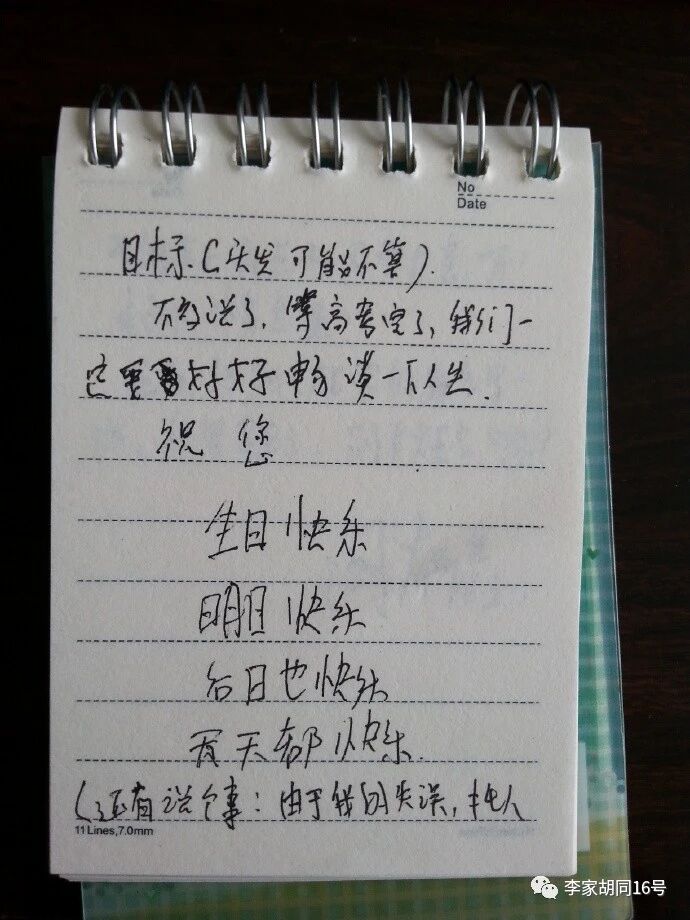 No
Date
目标.(头发可能不算).
不多说了,等高考完了,我们一
定要好好畅谈一下人生.
祝 您
生日快乐
明日快乐
后日也快乐
天天都快乐.
(还有说个事:由于我的失误,托人
11 Lines,7.0mm
李家胡同16号